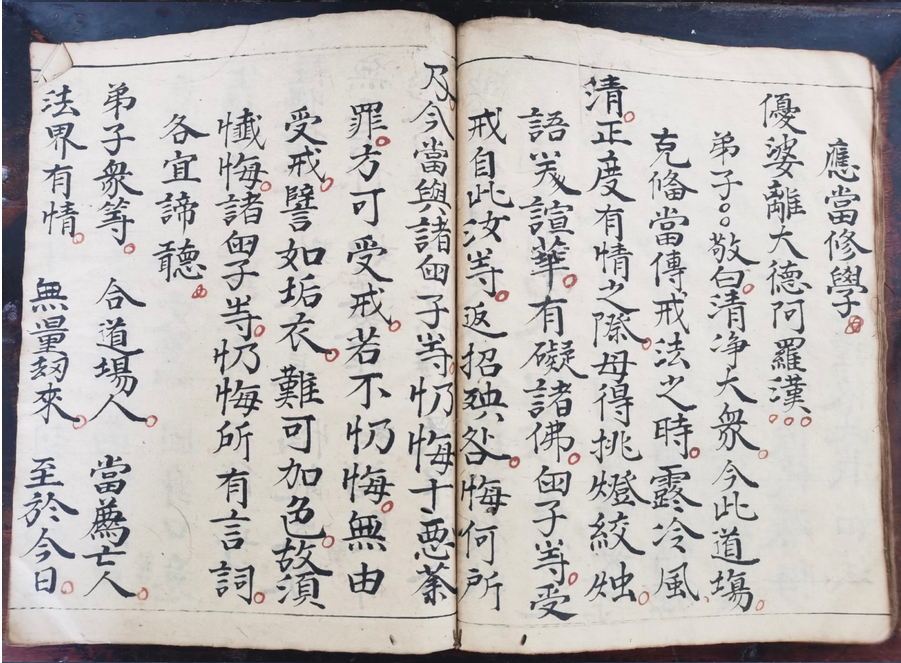 應當修學
優婆離大德阿羅漢
弟子敬白清净大衆今此道塲
克俻當傳戒法之時露冷風
清正度有情之際毋得挑燈絞烛
語笑諠華有礙諸佛囬子等受
戒自此汝等返招殃咎悔何所
乃今當與諸囬子等忏悔十惡業
罪方可受戒若不忏悔無由
受戒譬如垢衣難可加色故須
懺悔諸囬子等忏悔所有言詞
各宜諦聽
弟子衆等 合道場人 當薦亡人
法界有情 無量刼來 至於今日